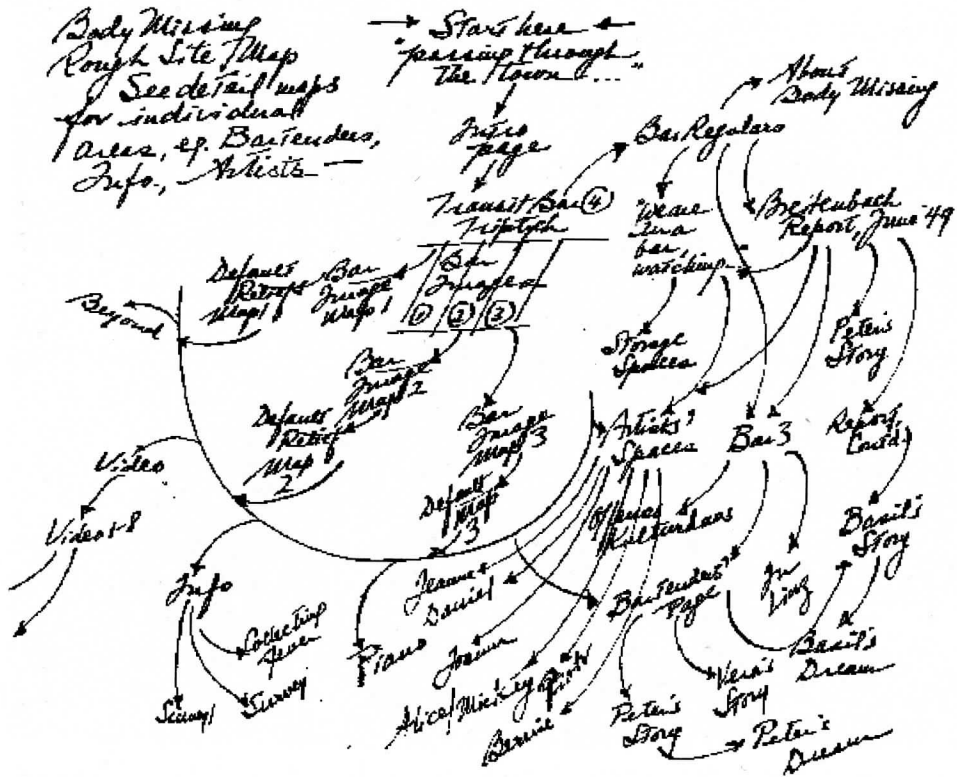 Body Missing
Rough Site Map
See detail maps
for individual
areas, eg. Bartenders,
Info., Artists —
→ Start here ←
"passing through
the town ..."
Intro
page
Transit Bar ④
Triptych
Bar
Images
① ② ③
Bar Regulars
About
Body Missing
"We are
in a
bar,
watching..."
Breitenbach
Report, June '49
Default
Relief
Map 1
Bar
Image
Map 1
Beyond
Bar
Image
Map 2
Default
Relief
Map
2
Bar
Image
Map 3
Default
Map
3
Storage
Spaces
Peter's
Story
Artists'
Spaces
Bar 3
Report,
Contd.
Video
Videos
Offenes
Kulturhaus
Basil's
Story
Info
Collecting
fever
Survey
Piano
Jeanne
Daniel
Joanna
Alice/Mickey
Bernie
Bartenders'
Page
In
Linz
Peter's
Story
Vera's
Story
Basil's
Dream
Peter's
Dream